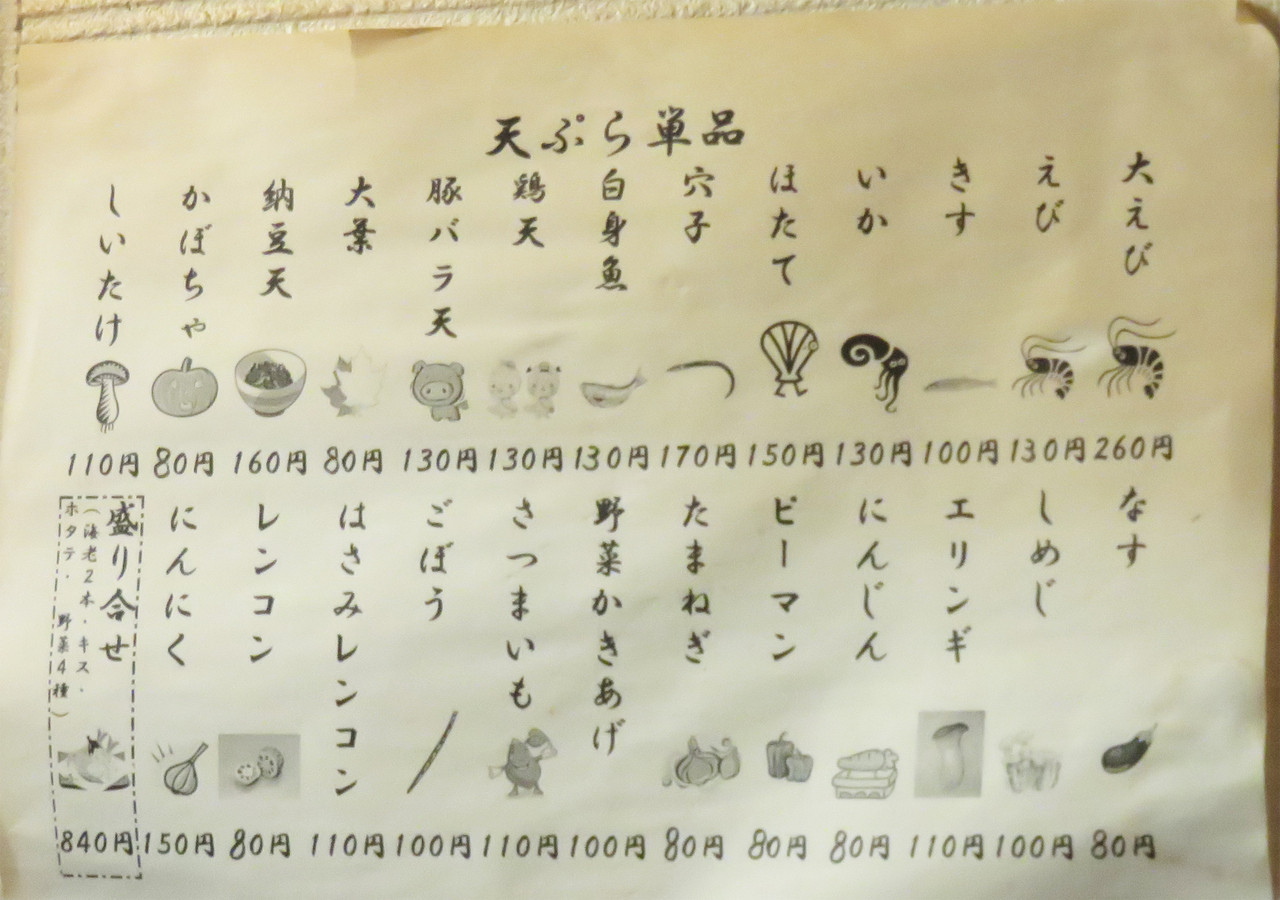 天ぷら単品
大えび
260円
えび
130円
きす
100円
いか
130円
ほたて
150円
穴子
170円
白身魚
130円
鶏天
130円
豚バラ天
130円
大葉
80円
納豆天
160円
かぼちゃ
80円
しいたけ
110円
なす
80円
しめじ
100円
エリンギ
110円
にんじん
80円
ピーマン
80円
たまねぎ
80円
野菜かきあげ
100円
さつまいも
110円
ごぼう
100円
はさみレンコン
110円
レンコン
80円
にんにく
150円
盛り合せ
(海老2本・キス・
ホタテ・ 野菜4種)
840円